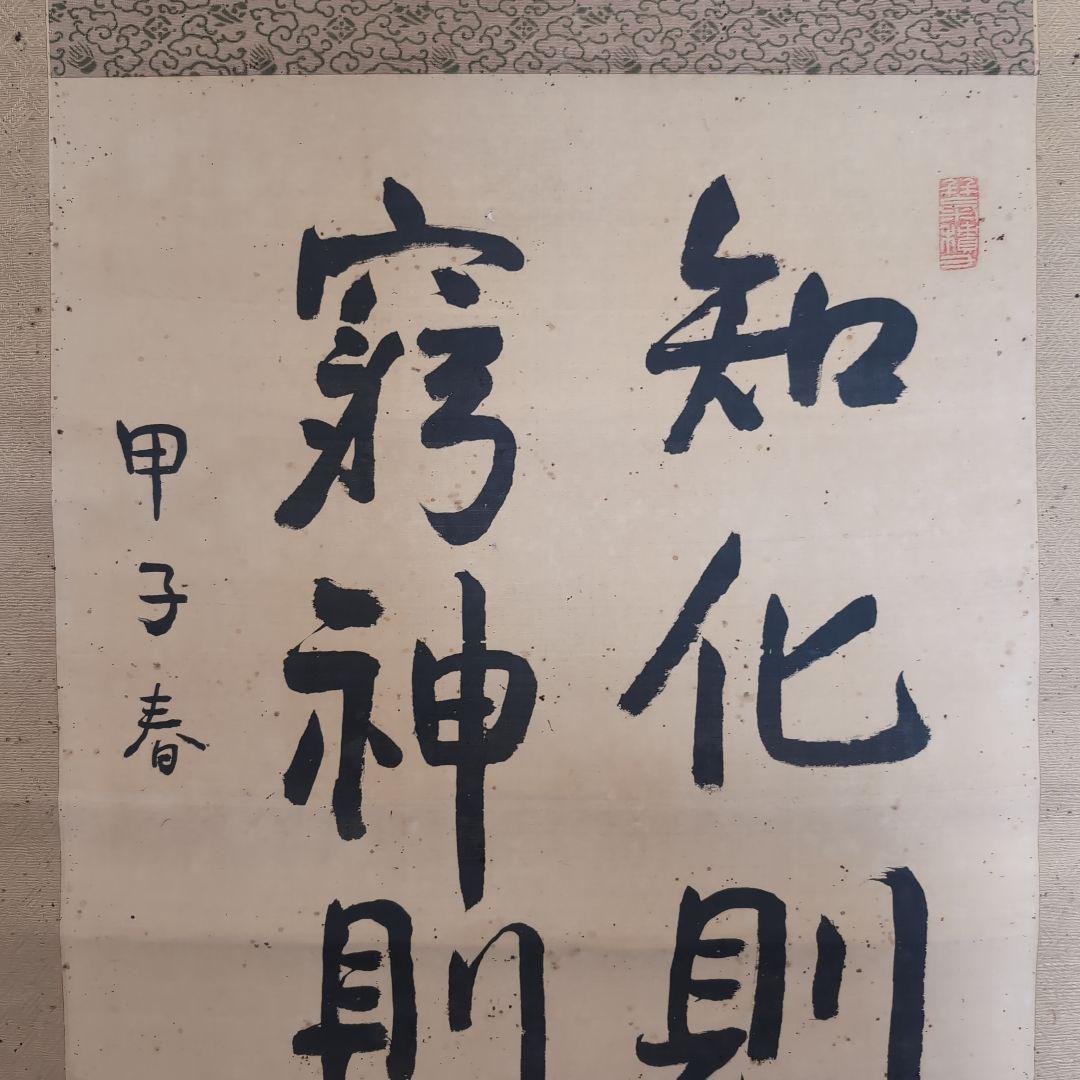 知化則
窮神則
甲子春